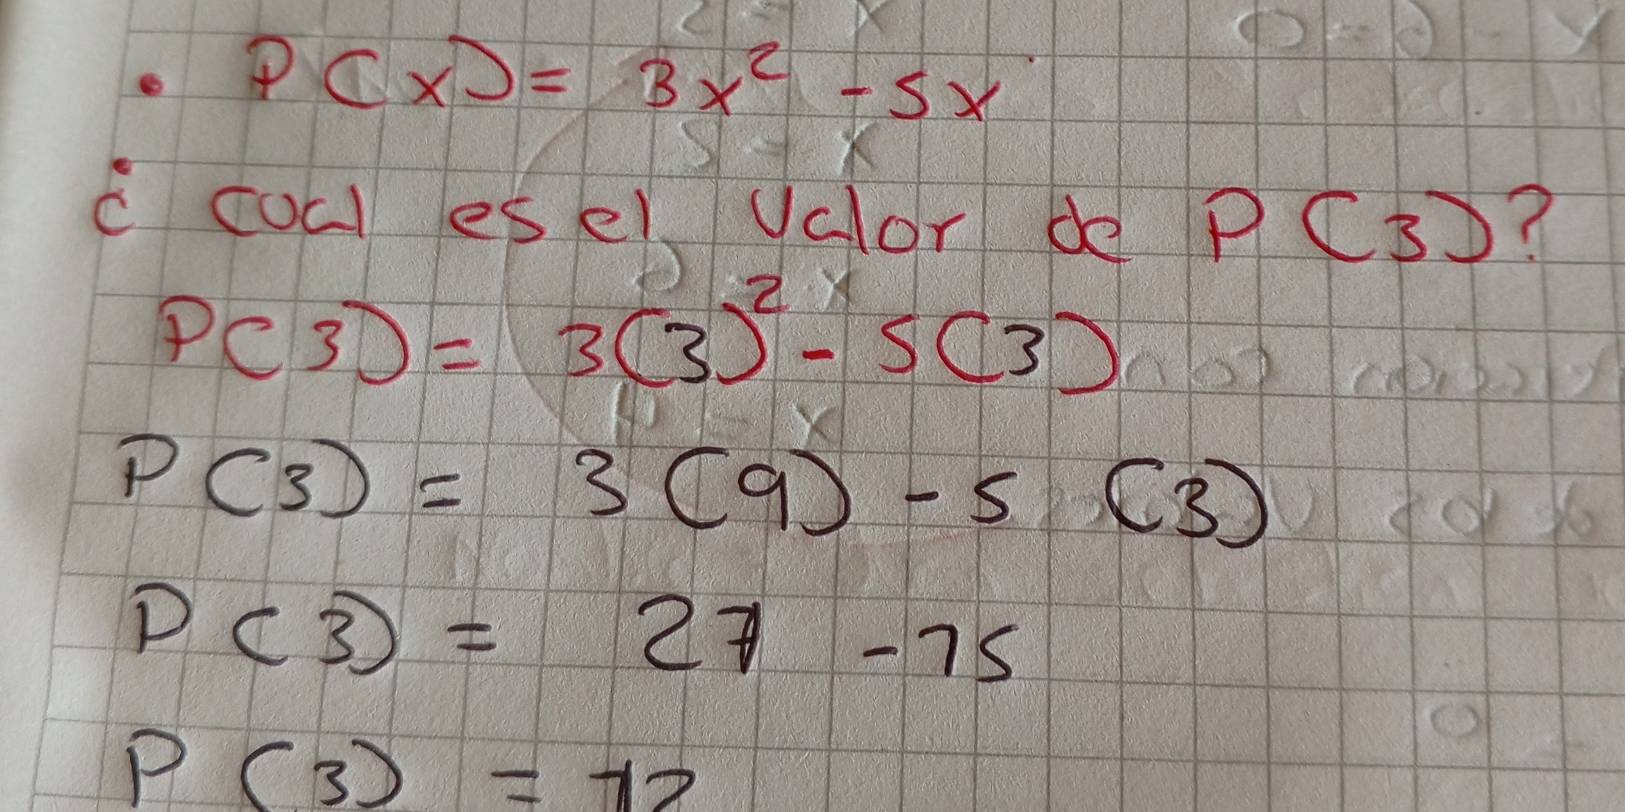 • P(x) = 3x² - 5x
¿ cual es el valor de P(3)?
P(3) = 3(3)² - 5(3)
P(3) = 3(9) - 5 (3)
P(3) = 27 - 15
P(3) = 12